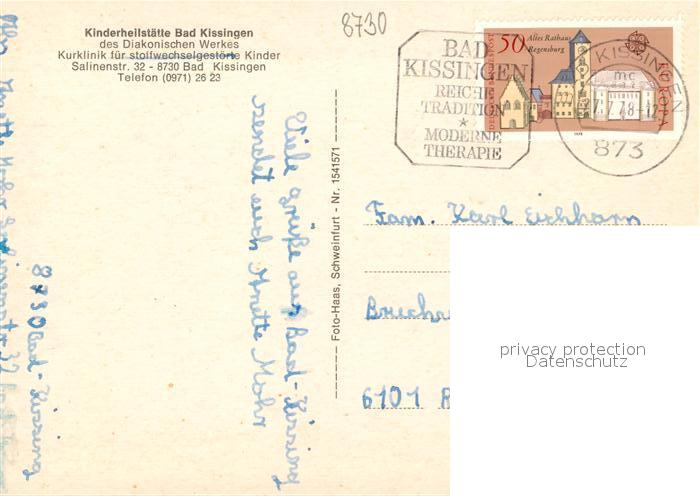 Kinderheilstätte Bad Kissingen
des Diakonischen Werkes
Kurklinik für stoffwechselgestörte Kinder
Salinenstr. 32 - 8730 Bad Kissingen
Telefon (0971) 26 23
8730
BAD
KISSINGEN
REICHE
TRADITION
*
MODERNE
THERAPIE
50
Altes Rathaus
Regensburg
DEUTSCHE BUNDESPOST
EUROPA
1978
KISSINGEN
mc
873
Viele grüße aus Bad-Kissing
sendet euch Anette Mohr
8730 Bad-Kissing
Foto-Haas, Schweinfurt - Nr. 1541571
Fam. Karl Eichhorn
6101
privacy protection
Datenschutz